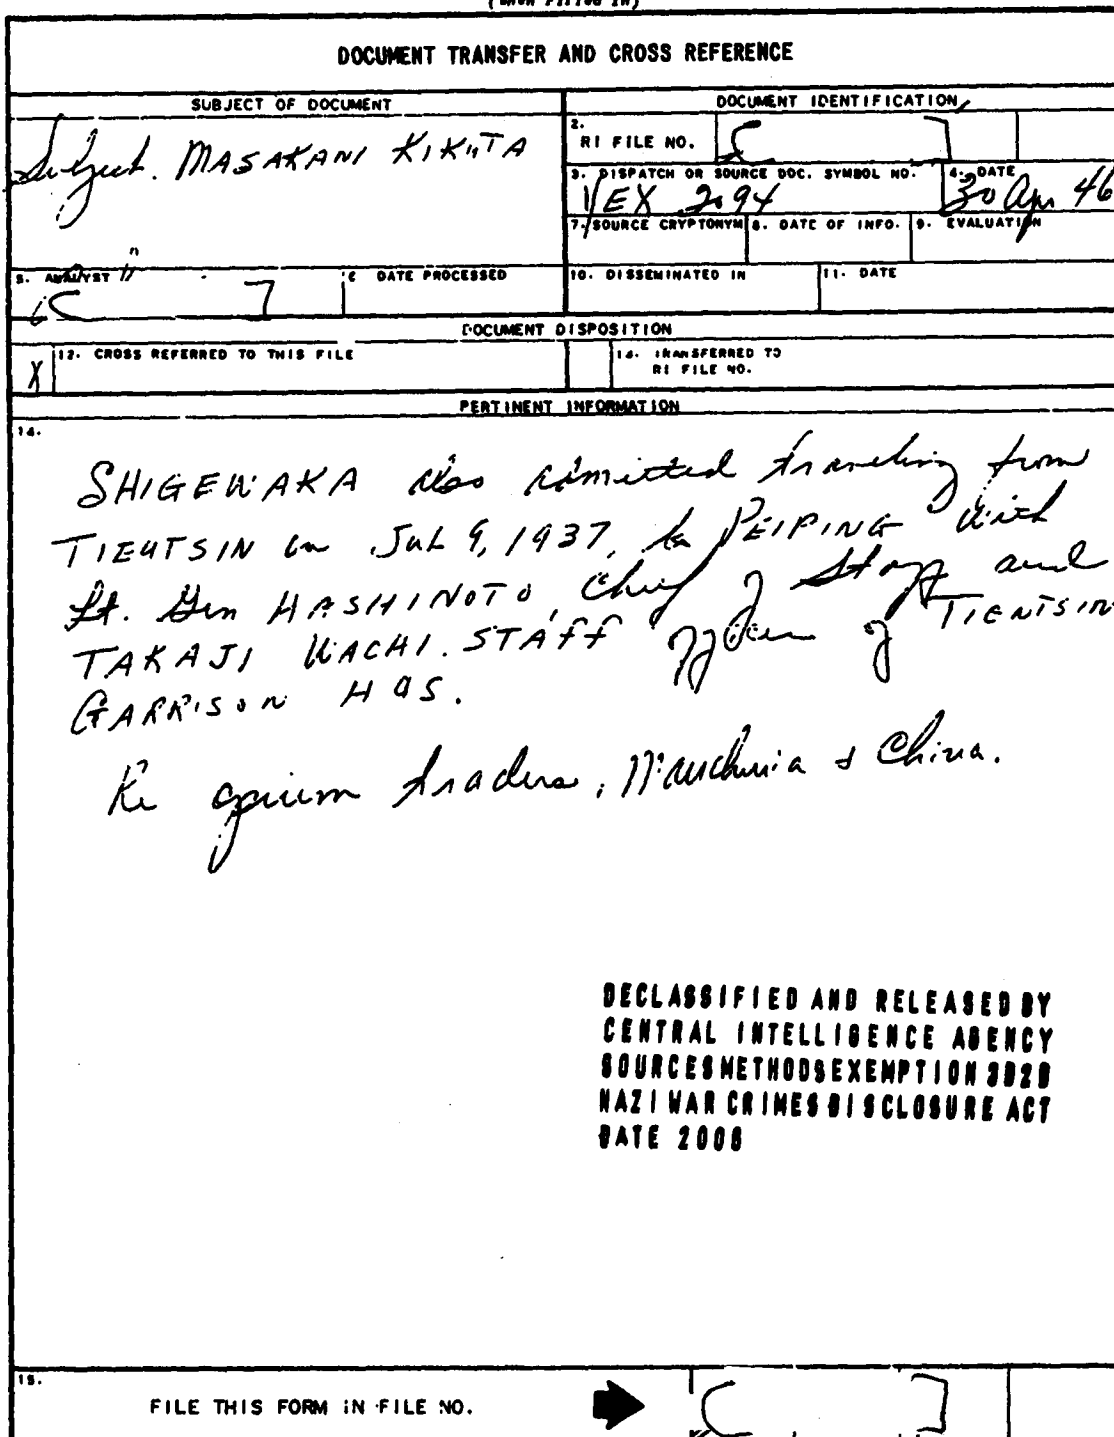 (When Filled In)
DOCUMENT TRANSFER AND CROSS REFERENCE
SUBJECT OF DOCUMENT
DOCUMENT IDENTIFICATION
Subject. MASAKANI KIKUTA
2.
RI FILE NO.
3. DISPATCH OR SOURCE DOC. SYMBOL NO.
4. DATE
VEX 2094
30 Apr 46
7. SOURCE CRYPTONYM
8. DATE OF INFO.
9. EVALUATION
5. ANALYST
6 DATE PROCESSED
10. DISSEMINATED IN
11. DATE
DOCUMENT DISPOSITION
X
12. CROSS REFERRED TO THIS FILE
13. TRANSFERRED TO
RI FILE NO.
PERTINENT INFORMATION
14.
SHIGEWAKA also admitted traveling from
TIENTSIN on Jul 9, 1937, to PEIPING with
Lt. Gen HASHINOTO, Chief of Staff and
TAKAJI WACHI. STAFF officer of TIENTSIN
GARRISON HQS.
Re opium traders, Manchuria & China.
DECLASSIFIED AND RELEASED BY
CENTRAL INTELLIGENCE AGENCY
SOURCES METHODS EXEMPTION 3B2B
NAZI WAR CRIMES DISCLOSURE ACT
DATE 2006
15.
FILE THIS FORM IN FILE NO.